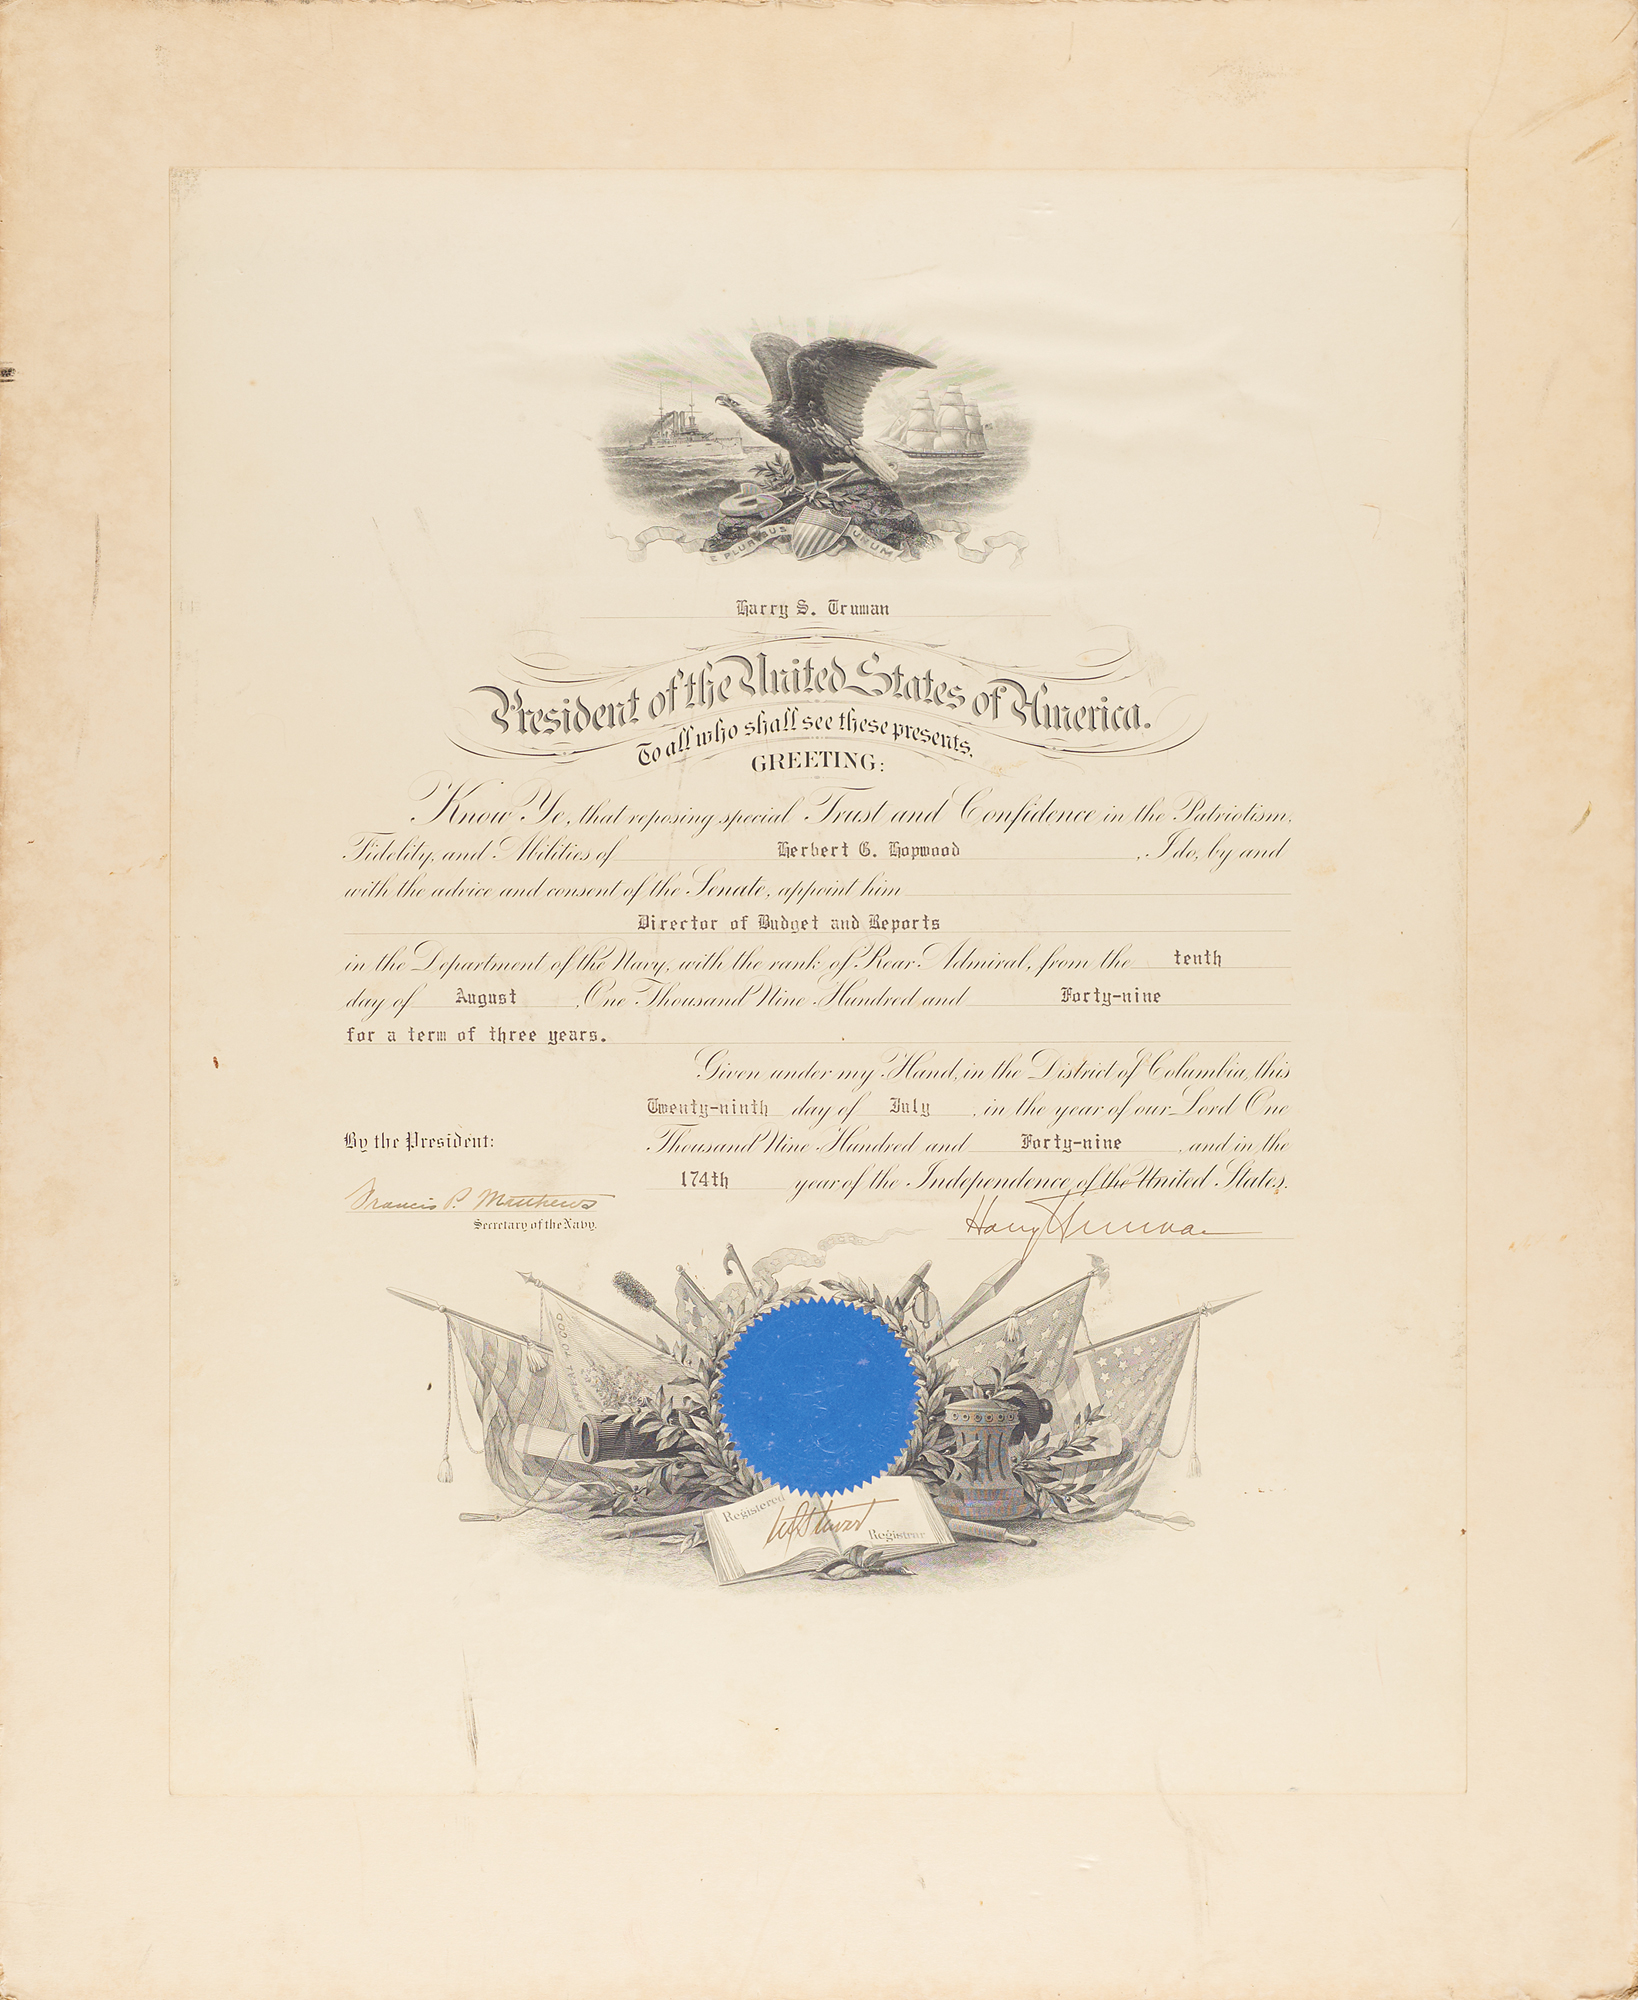 E PLURIBUS UNUM
Harry S. Truman
President of the United States of America.
To all who shall see these presents,
GREETING:
Know Ye, that reposing special Trust and Confidence in the Patriotism,
Fidelity, and Abilities of Herbert G. Hopwood, I do, by and
with the advice and consent of the Senate, appoint him
Director of Budget and Reports
in the Department of the Navy, with the rank of Rear Admiral, from the tenth
day of August, One Thousand Nine Hundred and Forty-nine
for a term of three years.
Given under my Hand, in the District of Columbia, this
Twenty-ninth day of July, in the year of our Lord One
By the President: Thousand Nine Hundred and Forty-nine, and in the
174th year of the Independence of the United States.
Francis P. Matthews
Secretary of the Navy.
Harry Truman
Registered
Registrar